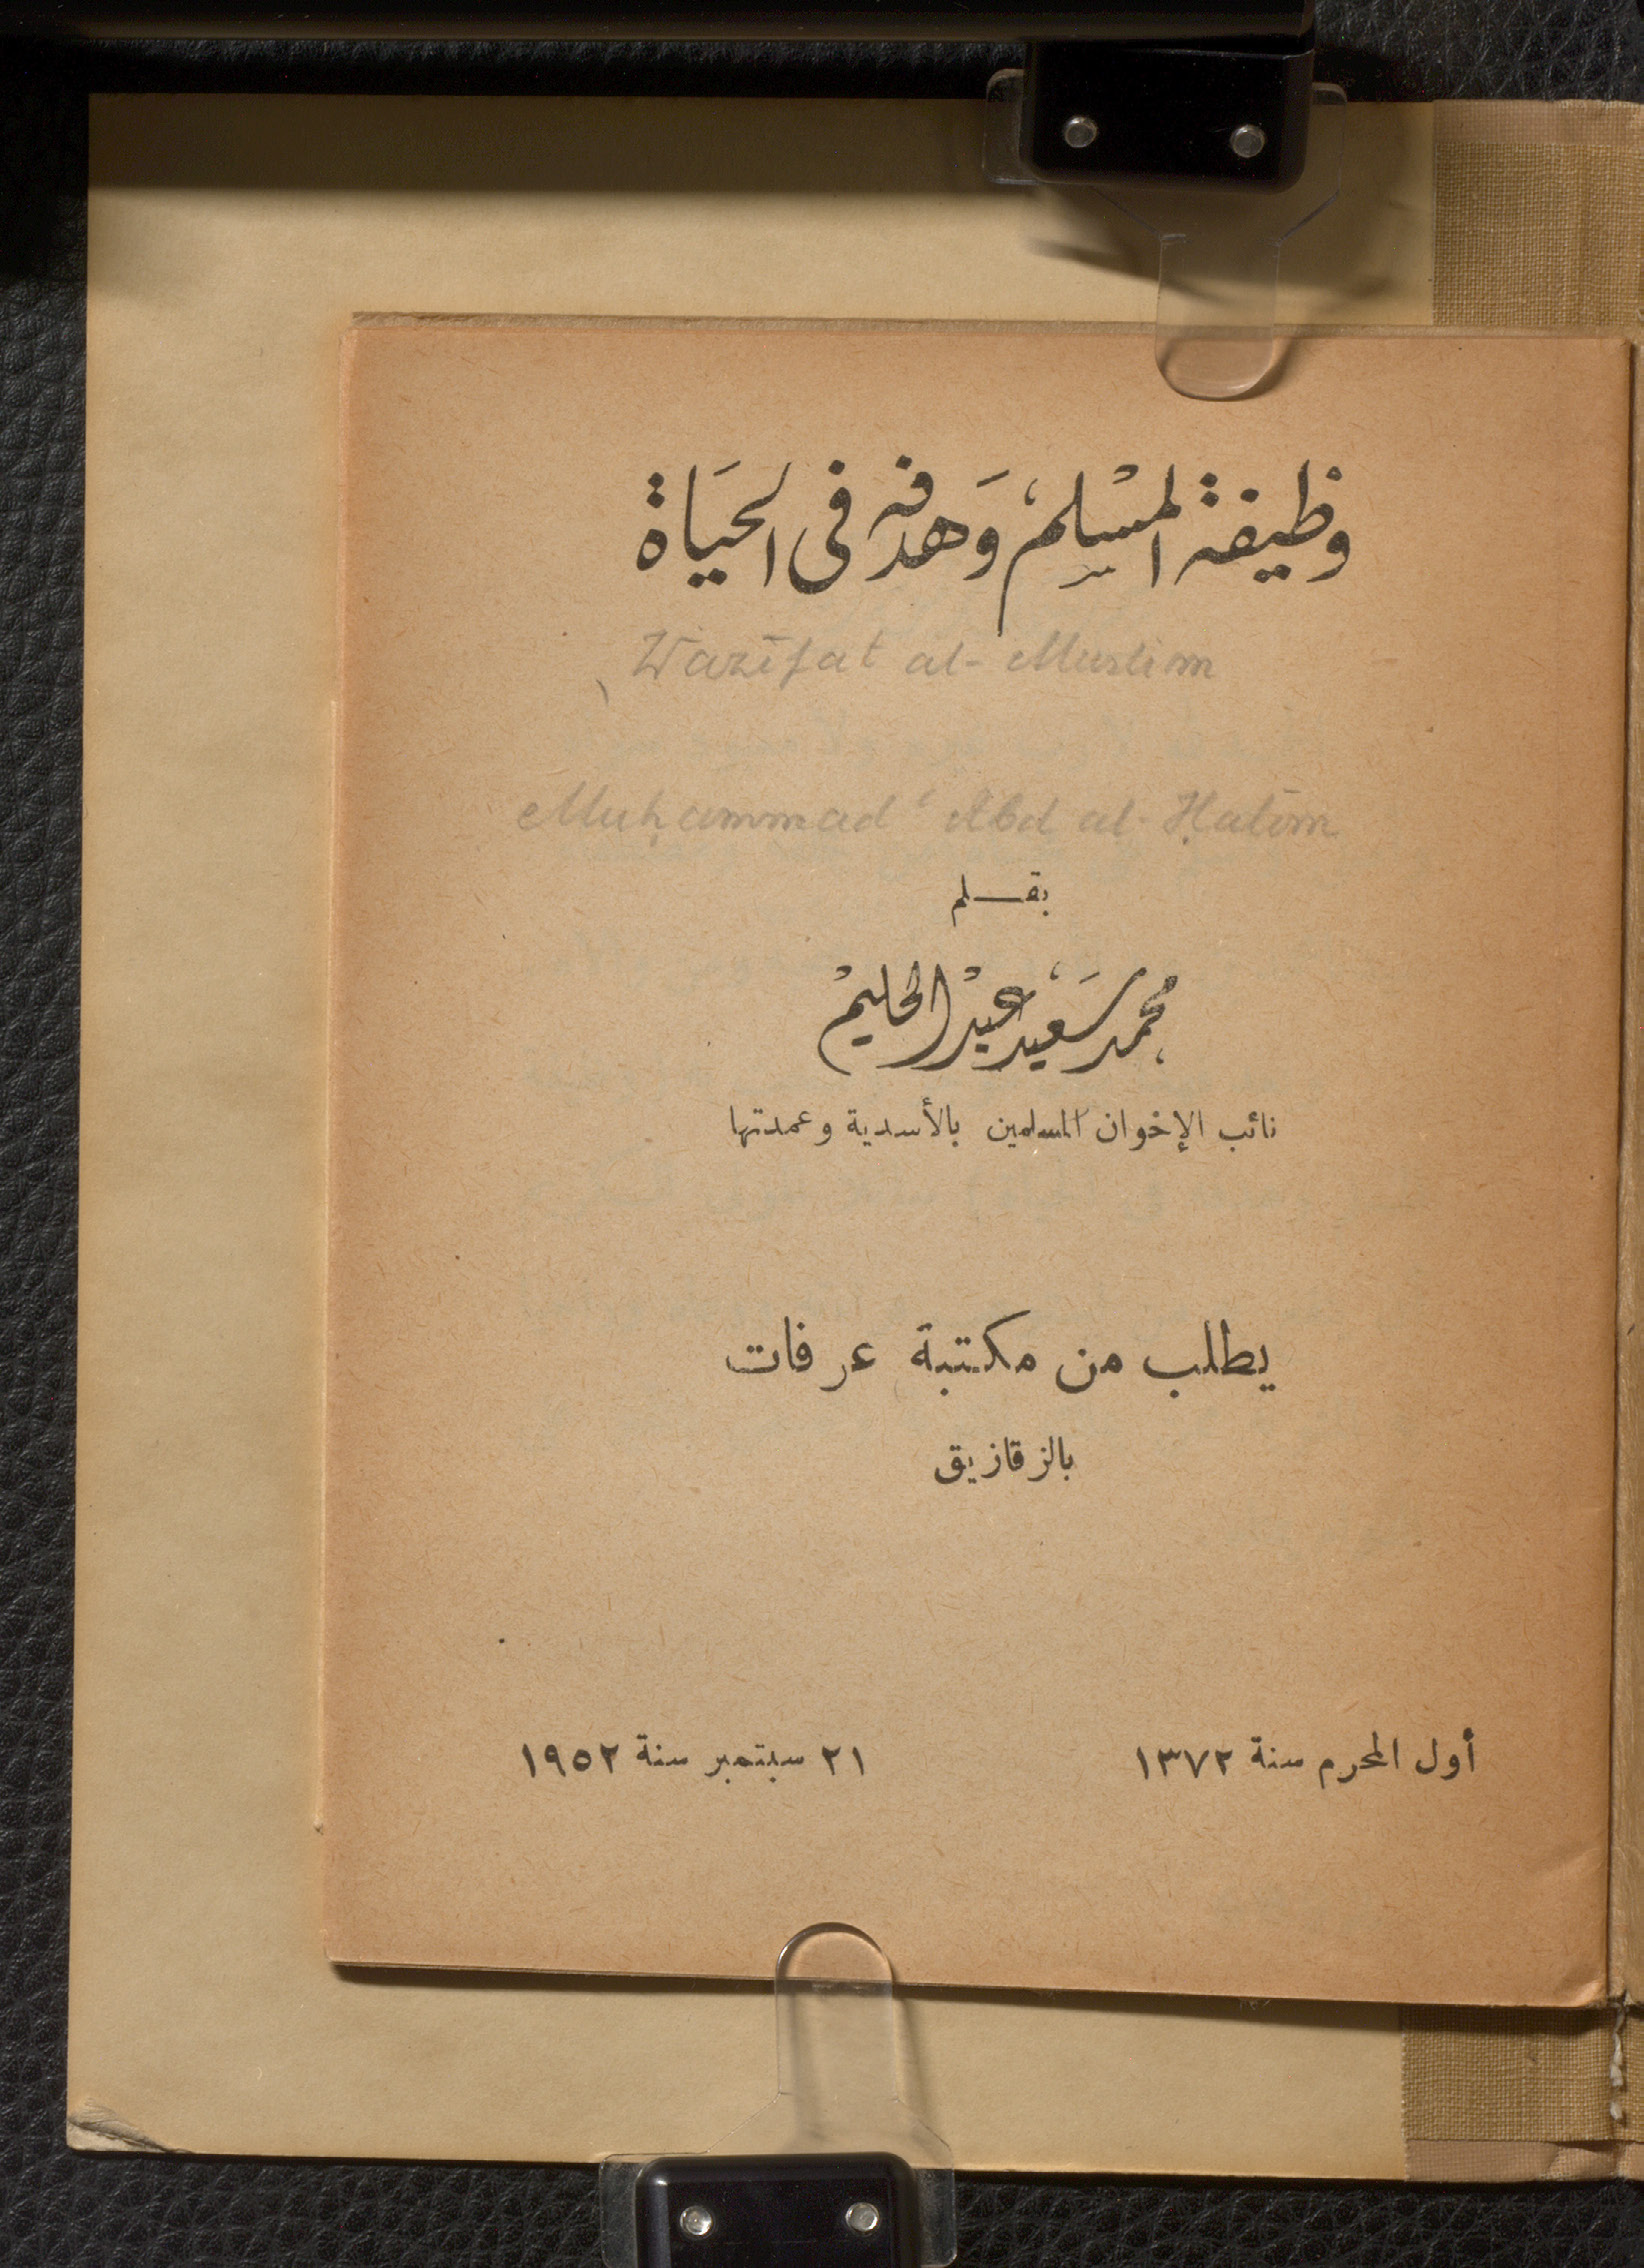 وظيفة المسلم وهدفه فى الحياة
Wazīfat al-Muslim
Muḥammad ʿAbd al-Ḥalīm
بقلم
محمد سعيد عبد الحليم
نائب الإخوان المسلمين بالأسدية وعمدتها
يطلب من مكتبة عرفات
بالزقازيق
أول المحرم سنة ١٣٧٢
٢١ سبتمبر سنة ١٩٥٢